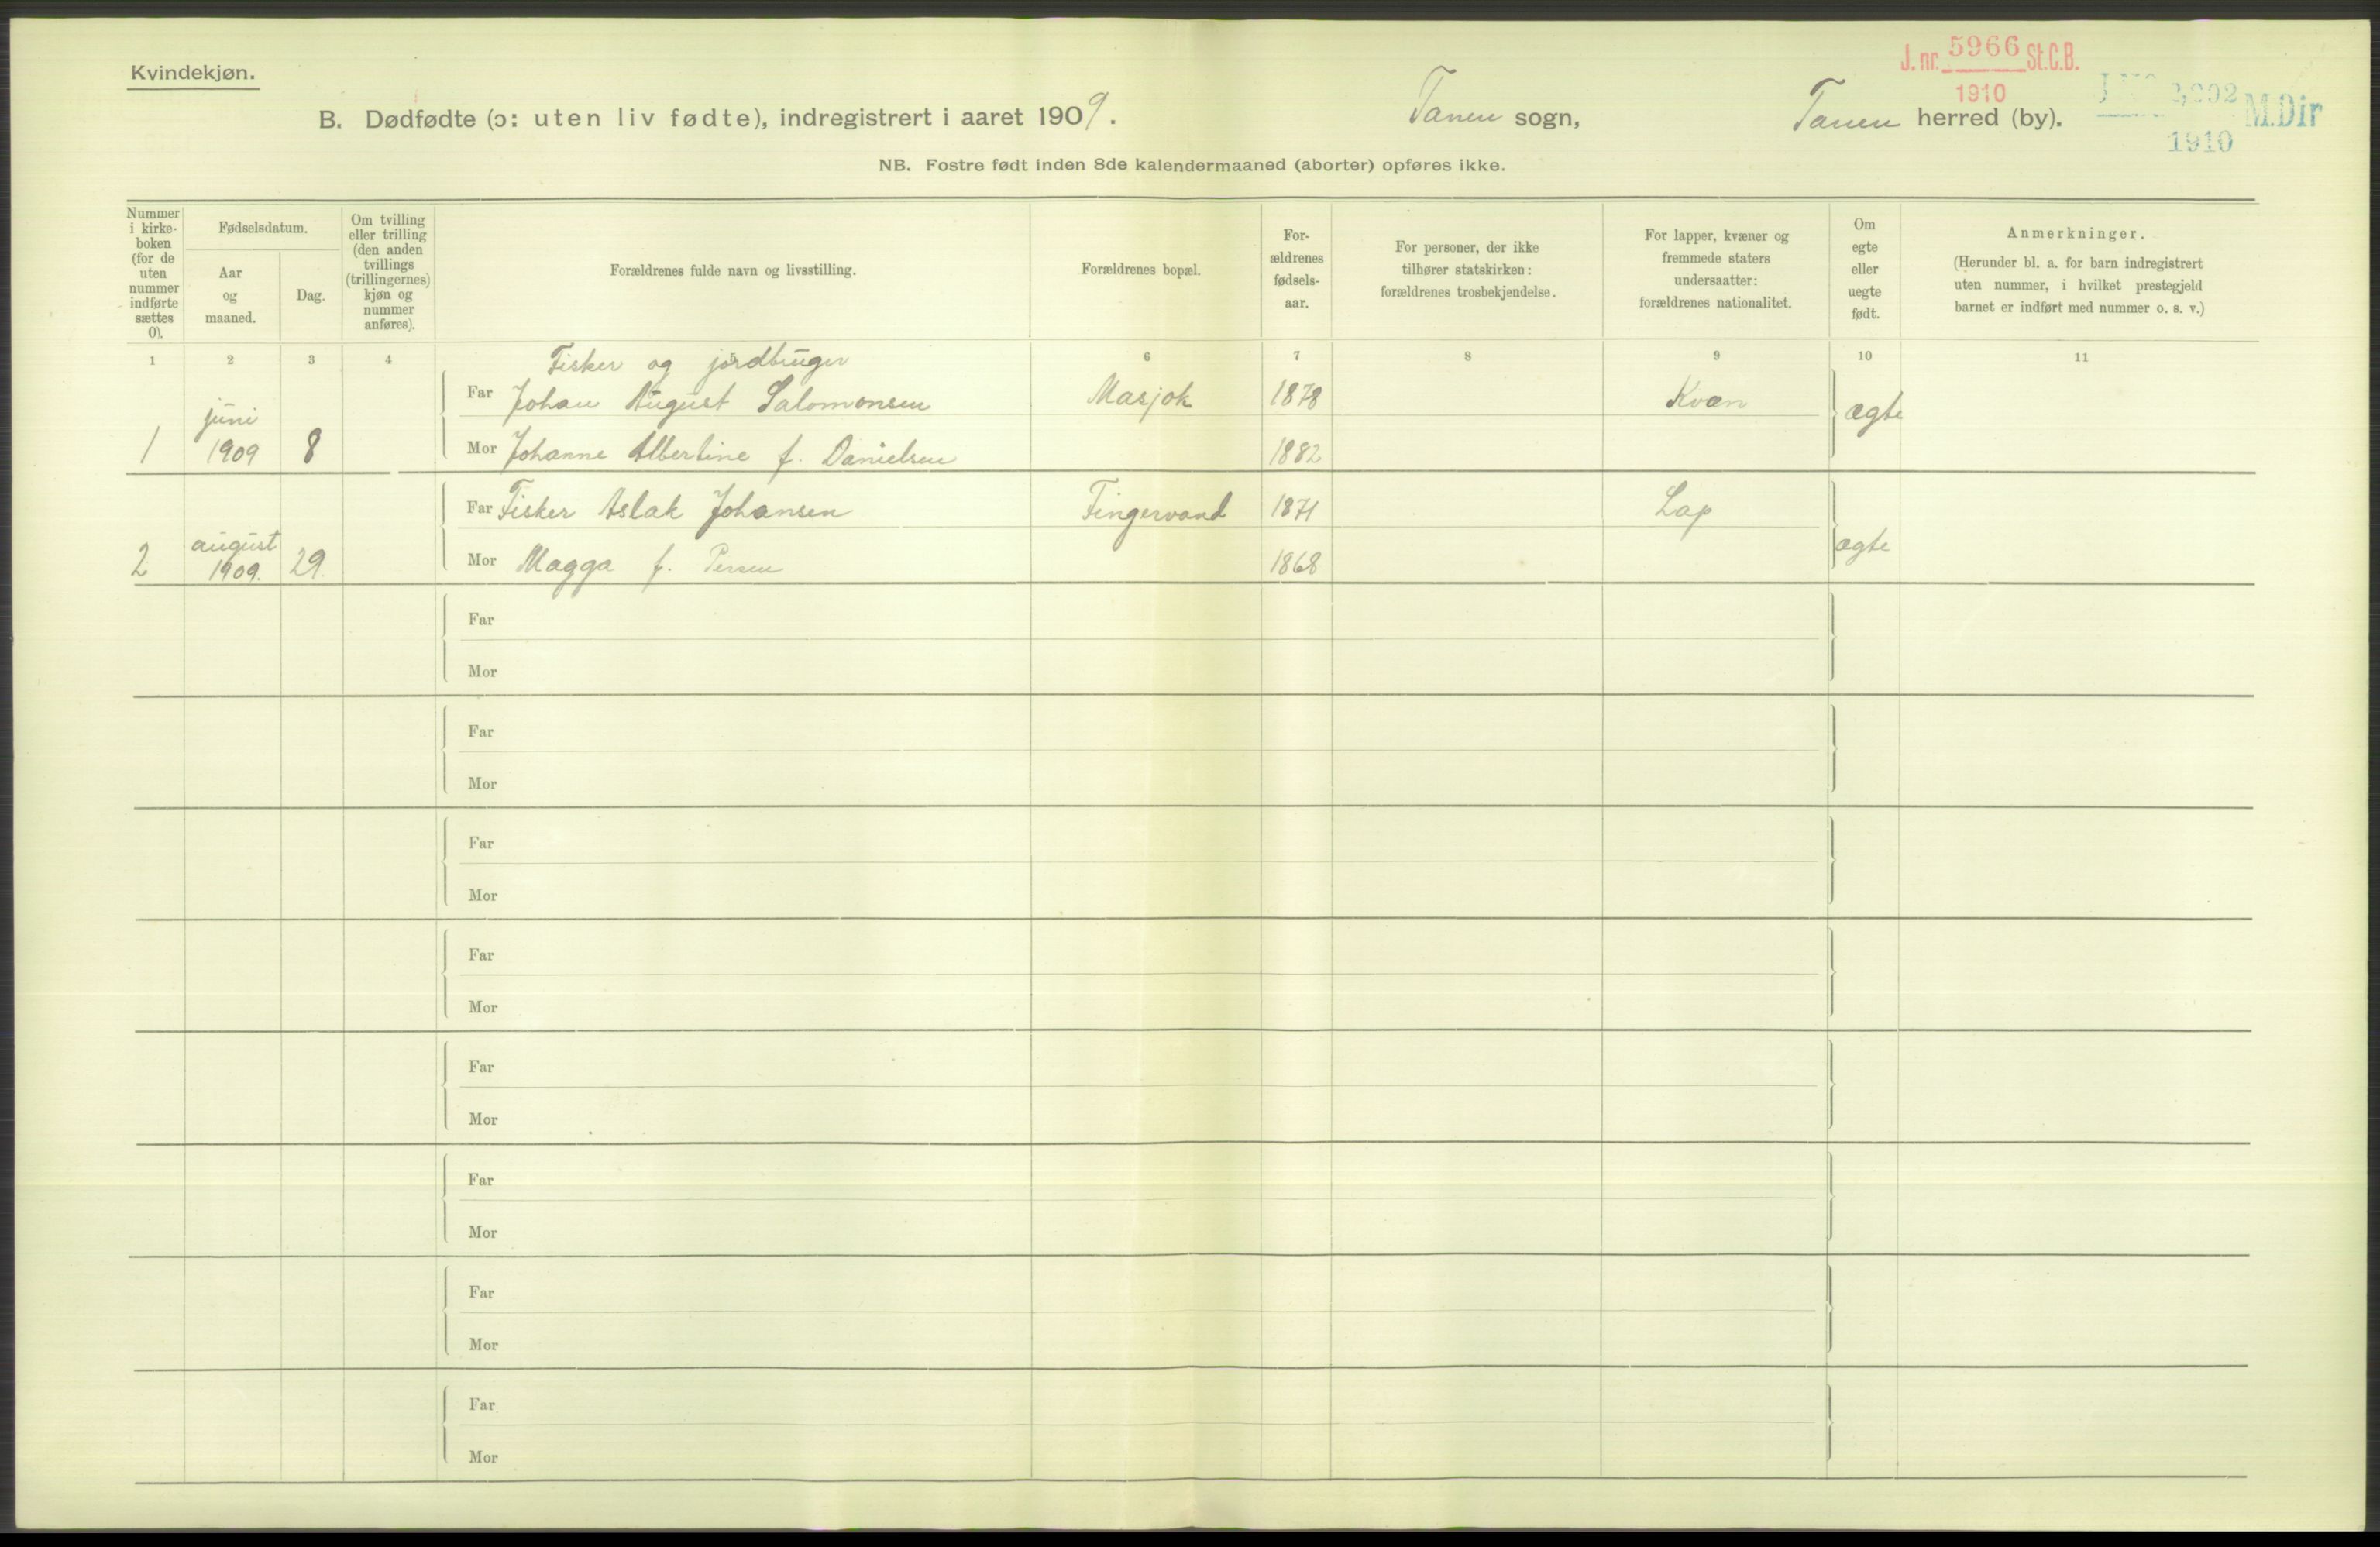 Kvindekjøn.
J. nr. 5966 St.C.B.
1910
2,202 M.Dir
1910
B. Dødfødte (ɔ: uten liv fødte), indregistrert i aaret 1909. Tanen sogn, Tanen herred (by).
NB. Fostre født inden 8de kalendermaaned (aborter) opføres ikke.
Nummer
i kirke-
boken
(for de
uten
nummer
indførte
sættes
0).
Fødselsdatum.
Aar
og
maaned.
Dag.
Om tvilling
eller trilling
(den anden
tvillings
(trillingernes)
kjøn og
nummer
anføres).
Forældrenes fulde navn og livsstilling.
Forældrenes bopæl.
For-
ældrenes
fødsels-
aar.
For personer, der ikke
tilhører statskirken:
forældrenes trosbekjendelse.
For lapper, kvæner og
fremmede staters
undersaatter:
forældrenes nationalitet.
Om
egte
eller
uegte
født.
Anmerkninger.
(Herunder bl. a. for barn indregistrert
uten nummer, i hvilket prestegjeld
barnet er indført med nummer o. s. v.)
1 2 3 4 5 6 7 8 9 10 11
Fisker og jordbruger
Far Johan August Salomonsen Masjok 1878 Kvæn
juni
1 1909 8 ægte
Mor Johanne Albertine f. Danielsen 1882
Far Fisker Aslak Johansen Fingervand 1871 Lap
august
2 1909. 29. ægte
Mor Magga f. Persen 1868
Far
Mor
Far
Mor
Far
Mor
Far
Mor
Far
Mor
Far
Mor
Far
Mor
Far
Mor